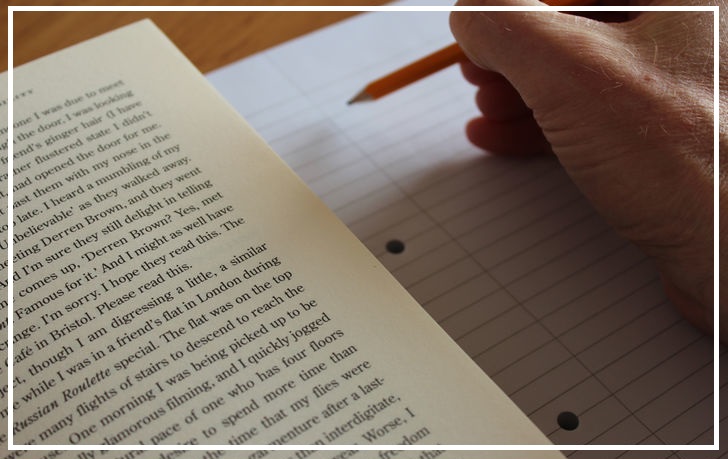 one I was due to meet
the door, I was looking
friend's ginger hair (I have
rather flustered state I didn't
had opened the door for me.
past them with my nose in the
too late. I heard a mumbling of my
Unbelievable' as they walked away.
meeting Derren Brown, and they went
And I'm sure they still delight in telling
comes up, 'Derren Brown? Yes, met
Famous for it.' And I might as well have
I'm sorry. I hope they read this. The
Café in Bristol. Please read this.
though I am digressing a little, a similar
me while I was in a friend's flat in London during
Russian Roulette special. The flat was on the top
were many flights of stairs to descend to reach the
One morning I was being picked up to be
glamorous filming, and I quickly jogged
pace of one who has four floors
desire to spend more time than
the time that my flies were
after a last-
then interdigitate,
Worse, I
freedom